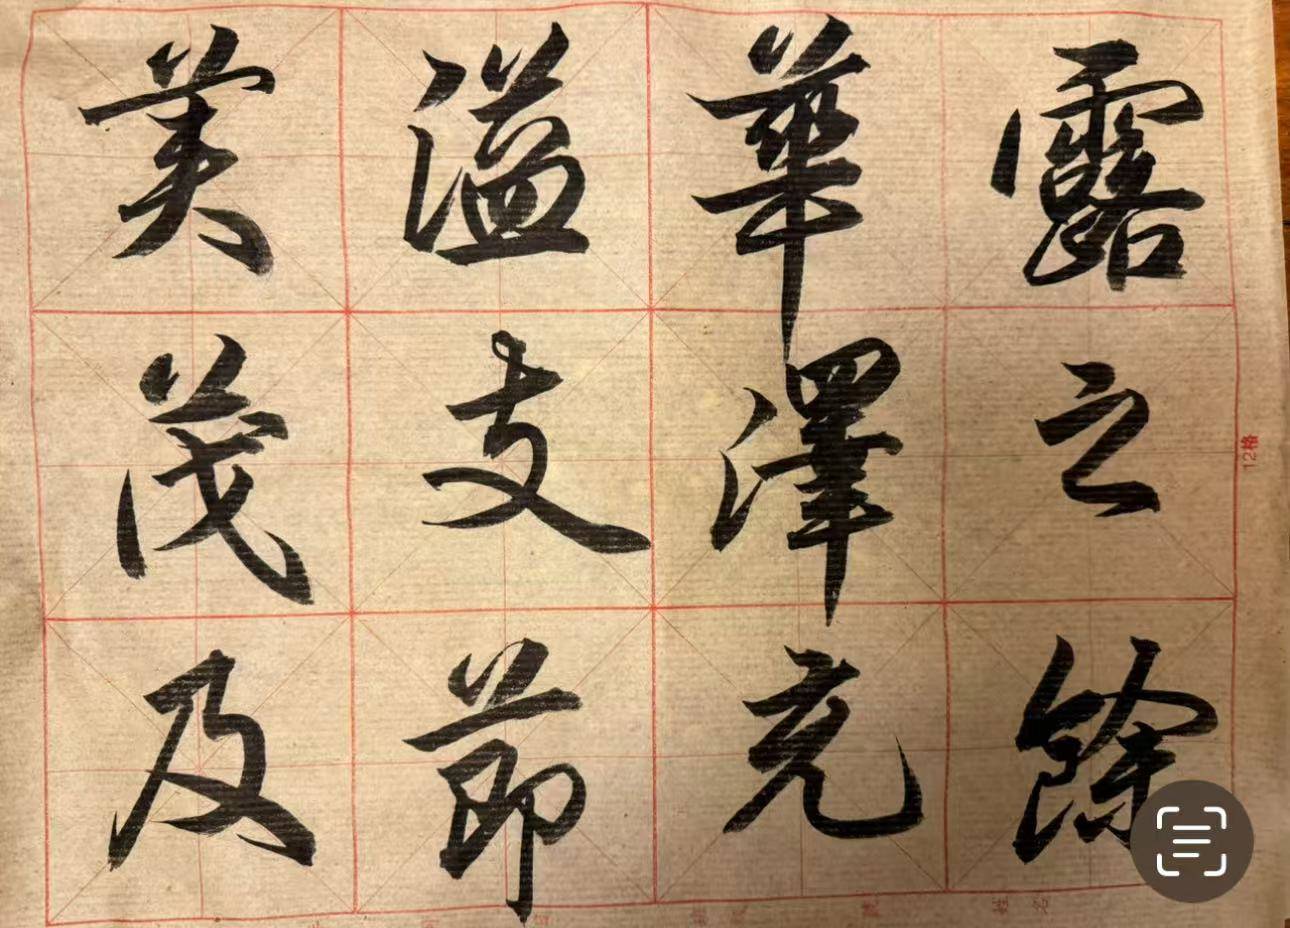 露之餘
華澤充
溢支節
美茂及
12格
姓名